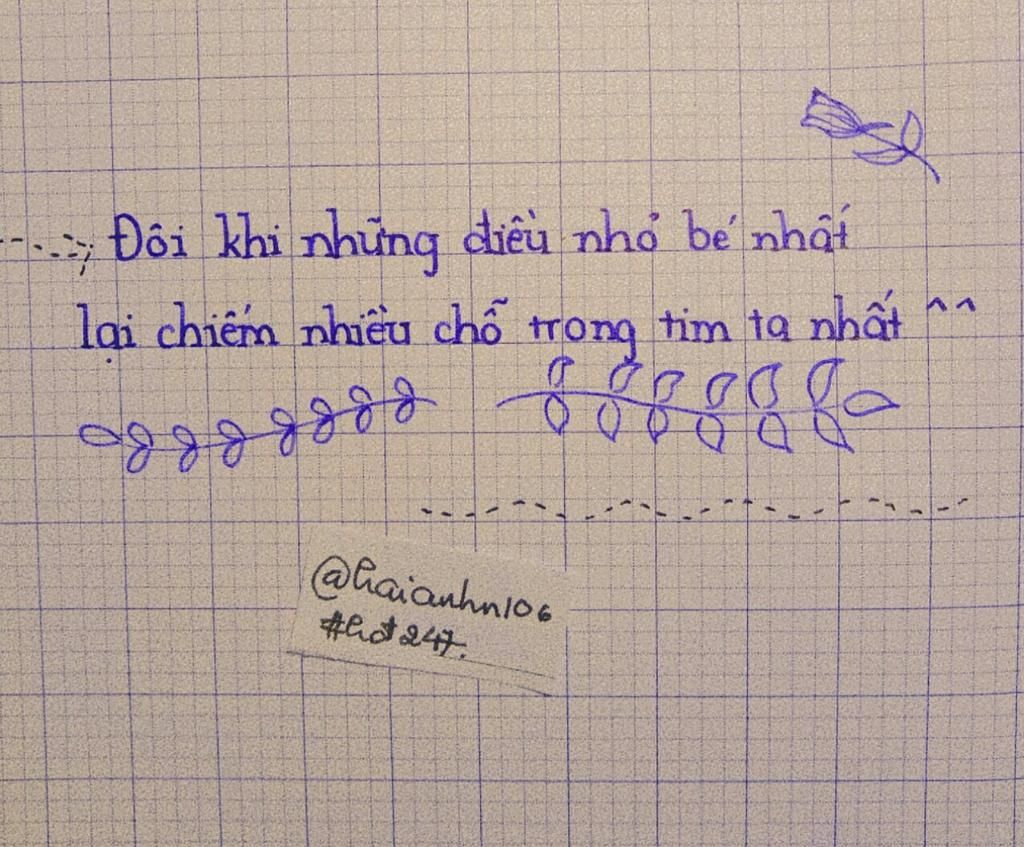 Đôi khi những điều nhỏ bé nhất
lại chiếm nhiều chỗ trong tim ta nhất ^^
@haianhn106
#hd247.